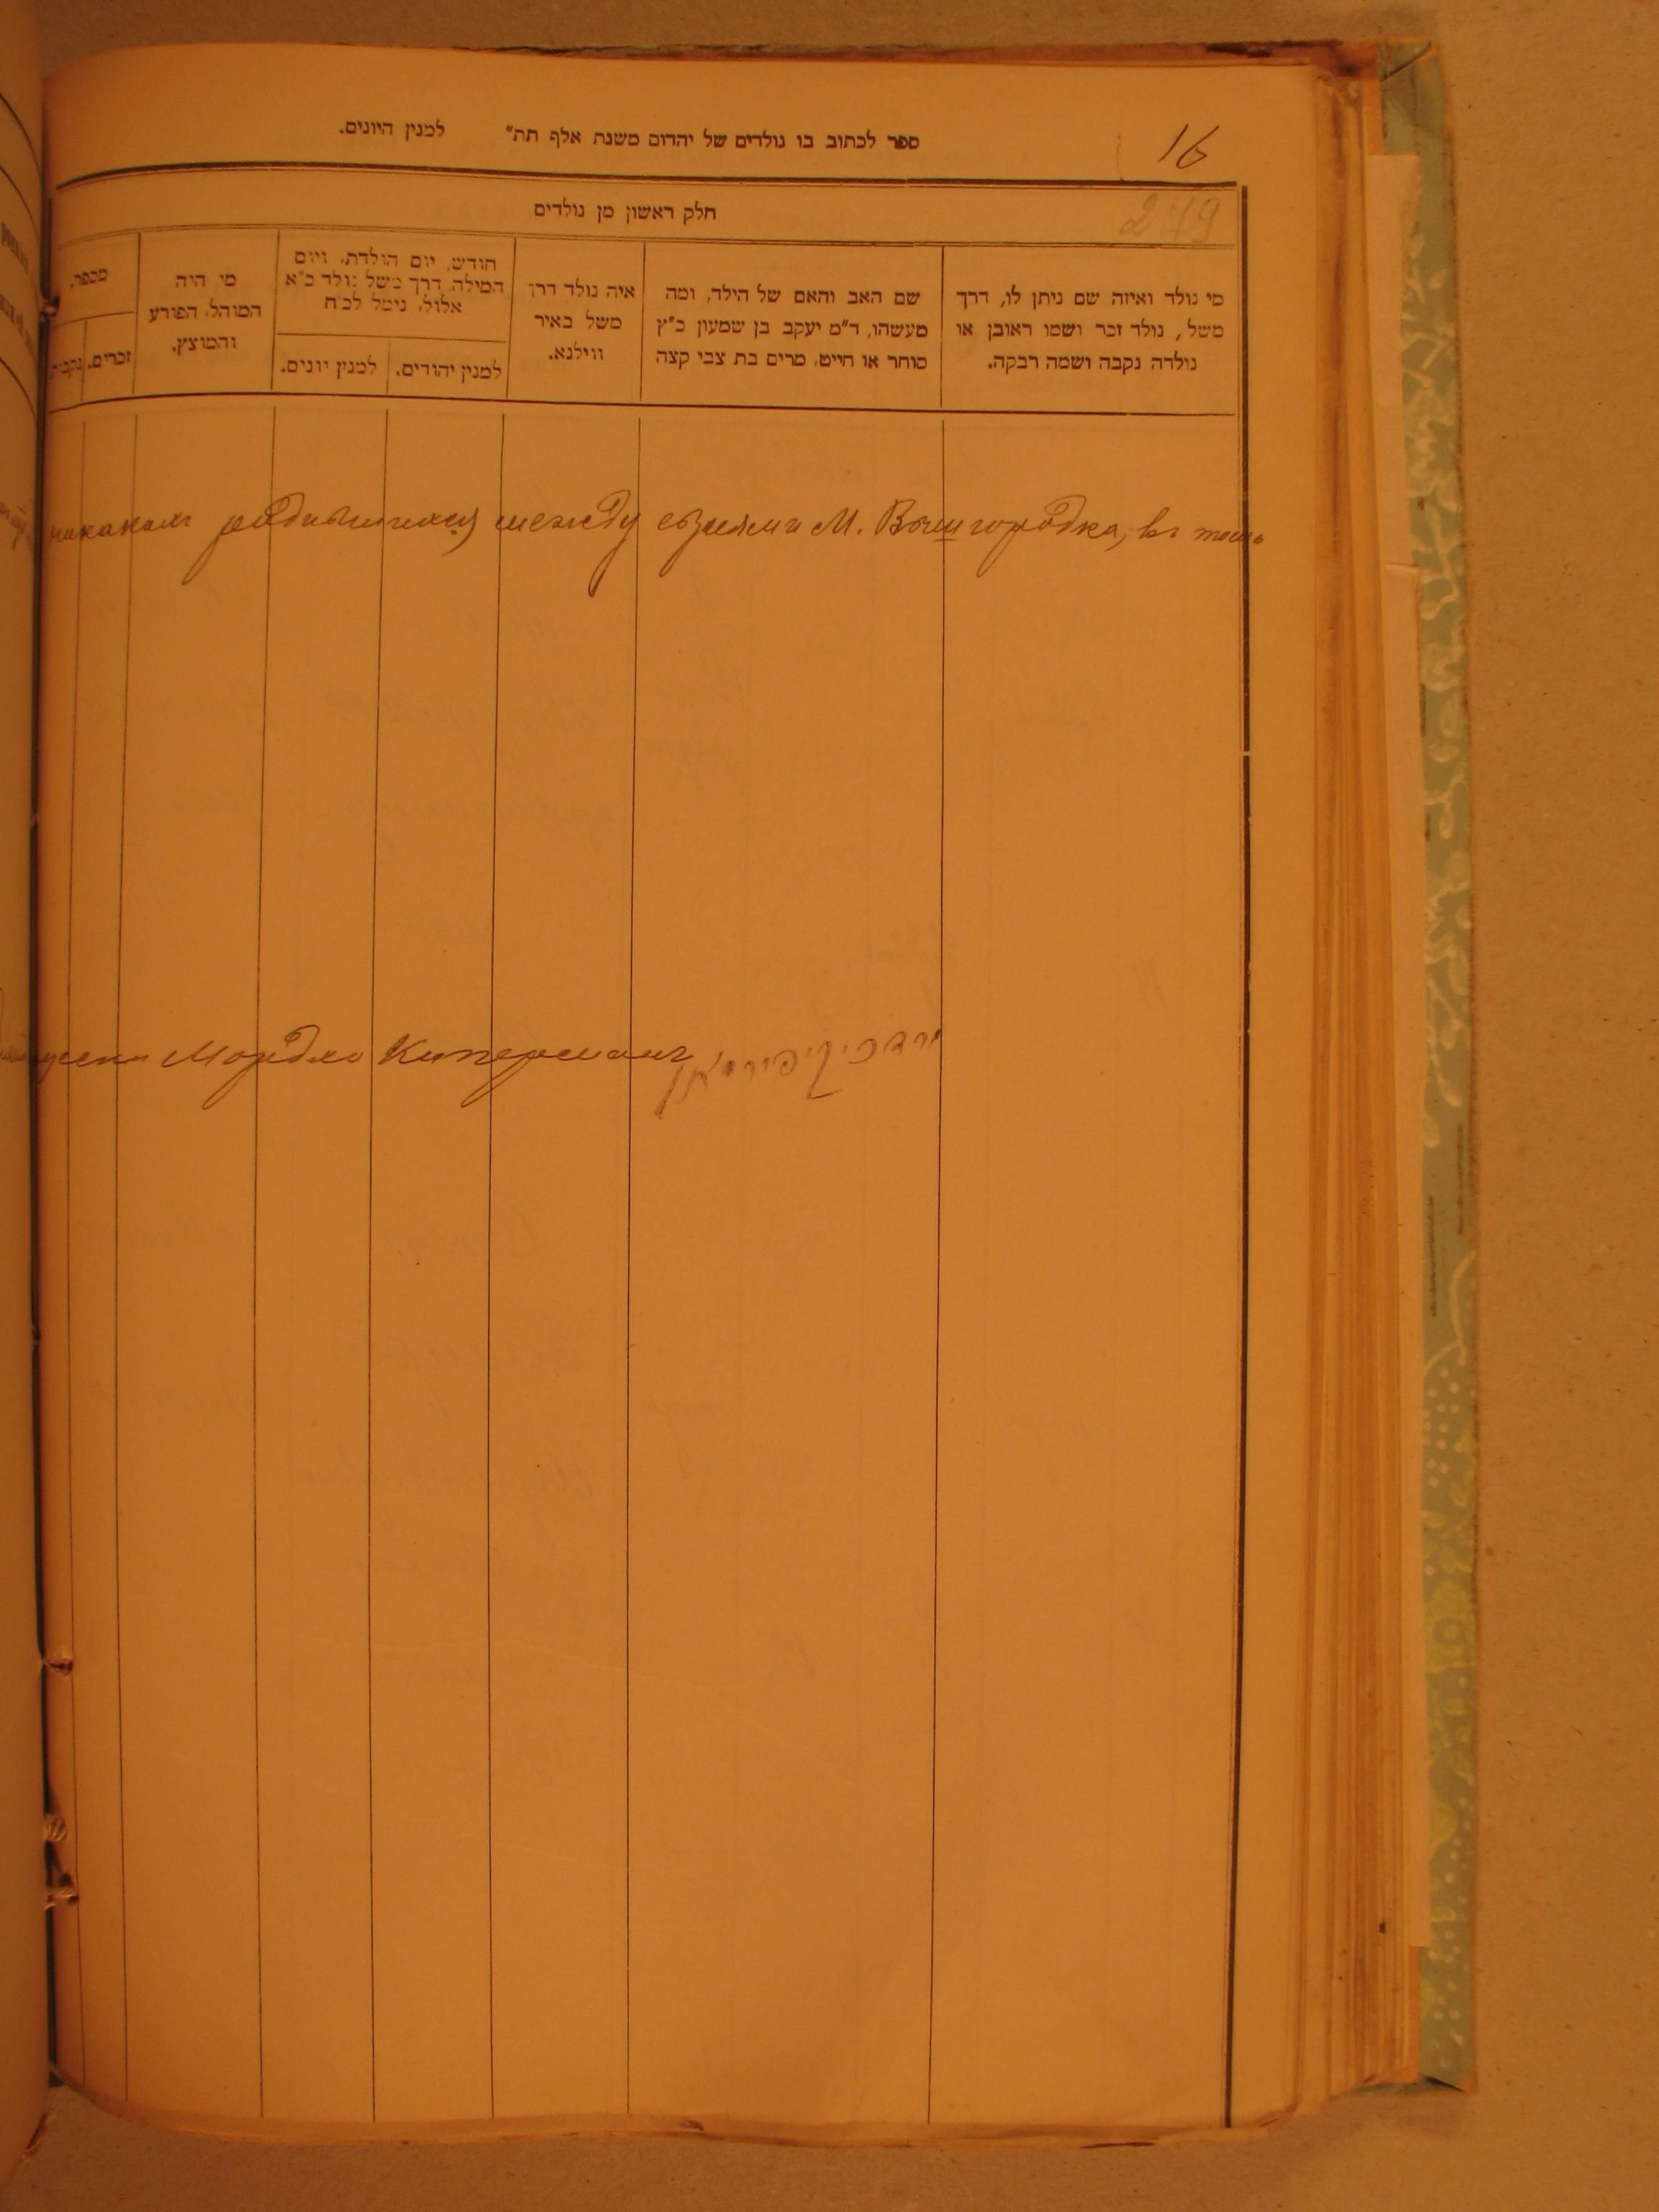 16
ספר לכתוב בו נולדים של יהדום משנת אלף תת״ למנין היונים.
279
חלק ראשון מן נולדים
מי נולד ואיזה שם ניתן לו, דרך
משל, נולד זכר ושמו ראובן או
נולדה נקבה ושמה רבקה.
שם האב והאם של הילד, ומה
מעשהו, ד״מ יעקב בן שמעון כ״ץ
סוחר או חייט, מרים בת צבי קצה
איה נולד דרך
משל באיר
ווילנא.
חודש, יום הולדת, ויום
המילה, דרך משל נולד כ״א
אלול, נימל לכ״ח
למנין יהודים.
למנין יונים.
מי היה
המוהל, הפורע
והמוצץ.
מספר.
זכרים.
נקבות
никакихъ родившихся между евреями М. Вышгородка, въ томъ
Мордко Киперманъ
מרדכי קיפערמאן